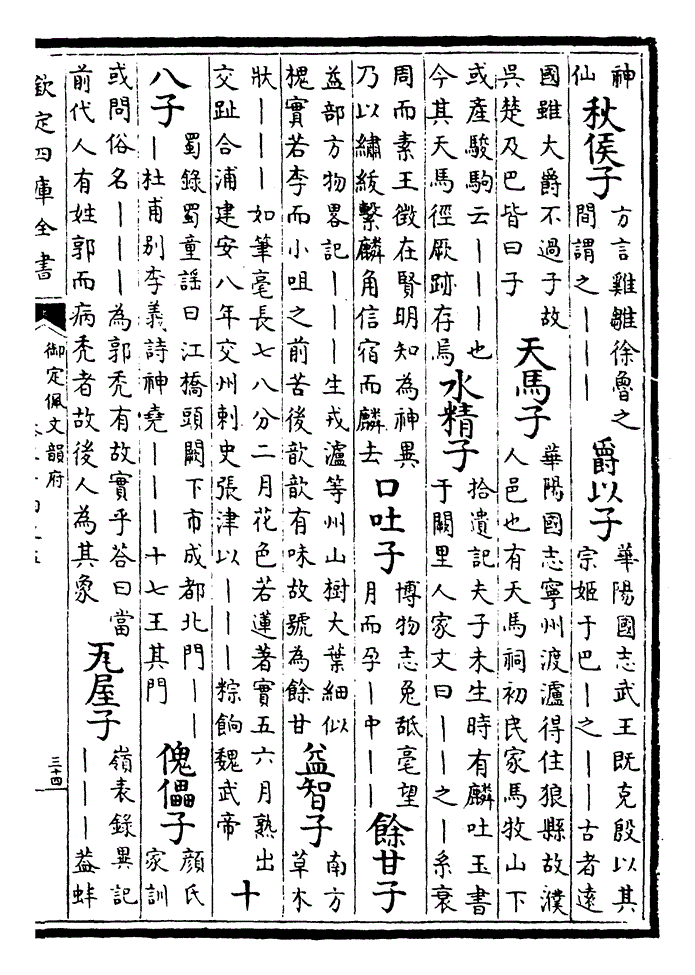 神仙 秋侯子 方言雞雛徐魯之間謂之丨丨丨 爵以子 華陽國志武王既克殷以其宗姬于巴丨之丨丨古者逺
國雖大爵不過子故吳楚及巴皆曰子 天馬子 華陽國志寧州渡瀘得住狼縣故濮人邑也有天馬祠初民家馬牧山下
或產駿駒云丨丨丨也今其天馬徑厥跡存焉 水精子 拾遺記夫子未生時有麟吐玉書于闕里人家文曰丨丨之丨系衰
周而素王徵在賢明知為神異乃以繡紱繫麟角信宿而麟去 口吐子 博物志兔舐毫望月而孕丨中丨丨 餘甘子
益部方物畧記丨丨丨生戎瀘等州山樹大葉細似槐實若李而小咀之前苦後歆歆有味故號為餘甘 益智子 南方草木
狀丨丨丨如筆毫長七八分二月花色若蓮著實五六月熟出交趾合浦建安八年交州刺史張津以丨丨丨粽餉魏武帝 十
八子 蜀錄蜀童謠曰江橋頭闕下市成都北門丨丨丨杜甫別李義詩神堯丨丨丨十七王其門 傀儡子 顔氏家訓
或問俗名丨丨丨為郭秃有故實乎荅曰當前代人有姓郭而病秃者故後人為其象 瓦屋子 嶺表錄異記丨丨丨葢蚌
欽定四庫全書
御定佩文韻府
三十四